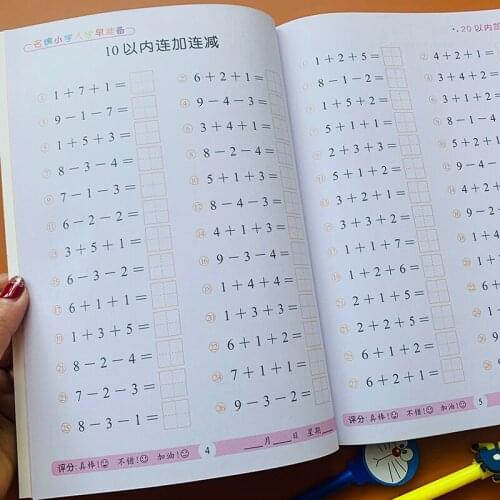 名牌小学入学早准备
10以内连加连减
① 1+7+1= ② 6+2+1=
③ 9-1-7= ④ 9-4-3=
⑤ 1+5+3= ⑥ 3+4+1=
⑦ 8-3-4= ⑧ 8-2-4=
⑨ 7-1-3= ⑩ 5+1+3=
⑪ 6-2-2= ⑫ 8-3-4=
⑬ 3+5+1= ⑭ 4+1+3=
⑮ 6-3-2= ⑯ 9-3-4=
⑰ 6+1+1= ⑱ 1+4+4=
⑲ 1+3+5= ⑳ 1+3+3=
㉑ 8-2-4= ㉒ 6+1+2=
㉓ 7-2-3= ㉔ 7+1+1=
㉕ 8-3-1= ㉖ 9-3-2=
评分:真棒! 不错! 加油! 4 __月__日 星期__
20以内加
① 1+2+5= ② 4+2+1
③ 8-1-2= ④ 3+4+2
⑤ 1+5+2= ⑥ 3+1+2
⑦ 5+1+1=
⑨ 2+3+3=
⑪ 8-2-1=
⑬ 5+1+2=
⑮ 3+3+2=
⑰ 1+1+7=
⑲ 1+2+6=
㉑ 2+1+5=
㉓ 2+2+5=
㉕ 6+1+2=
㉗ 6+2+1=
评分:真棒! 不错! 加油! 5